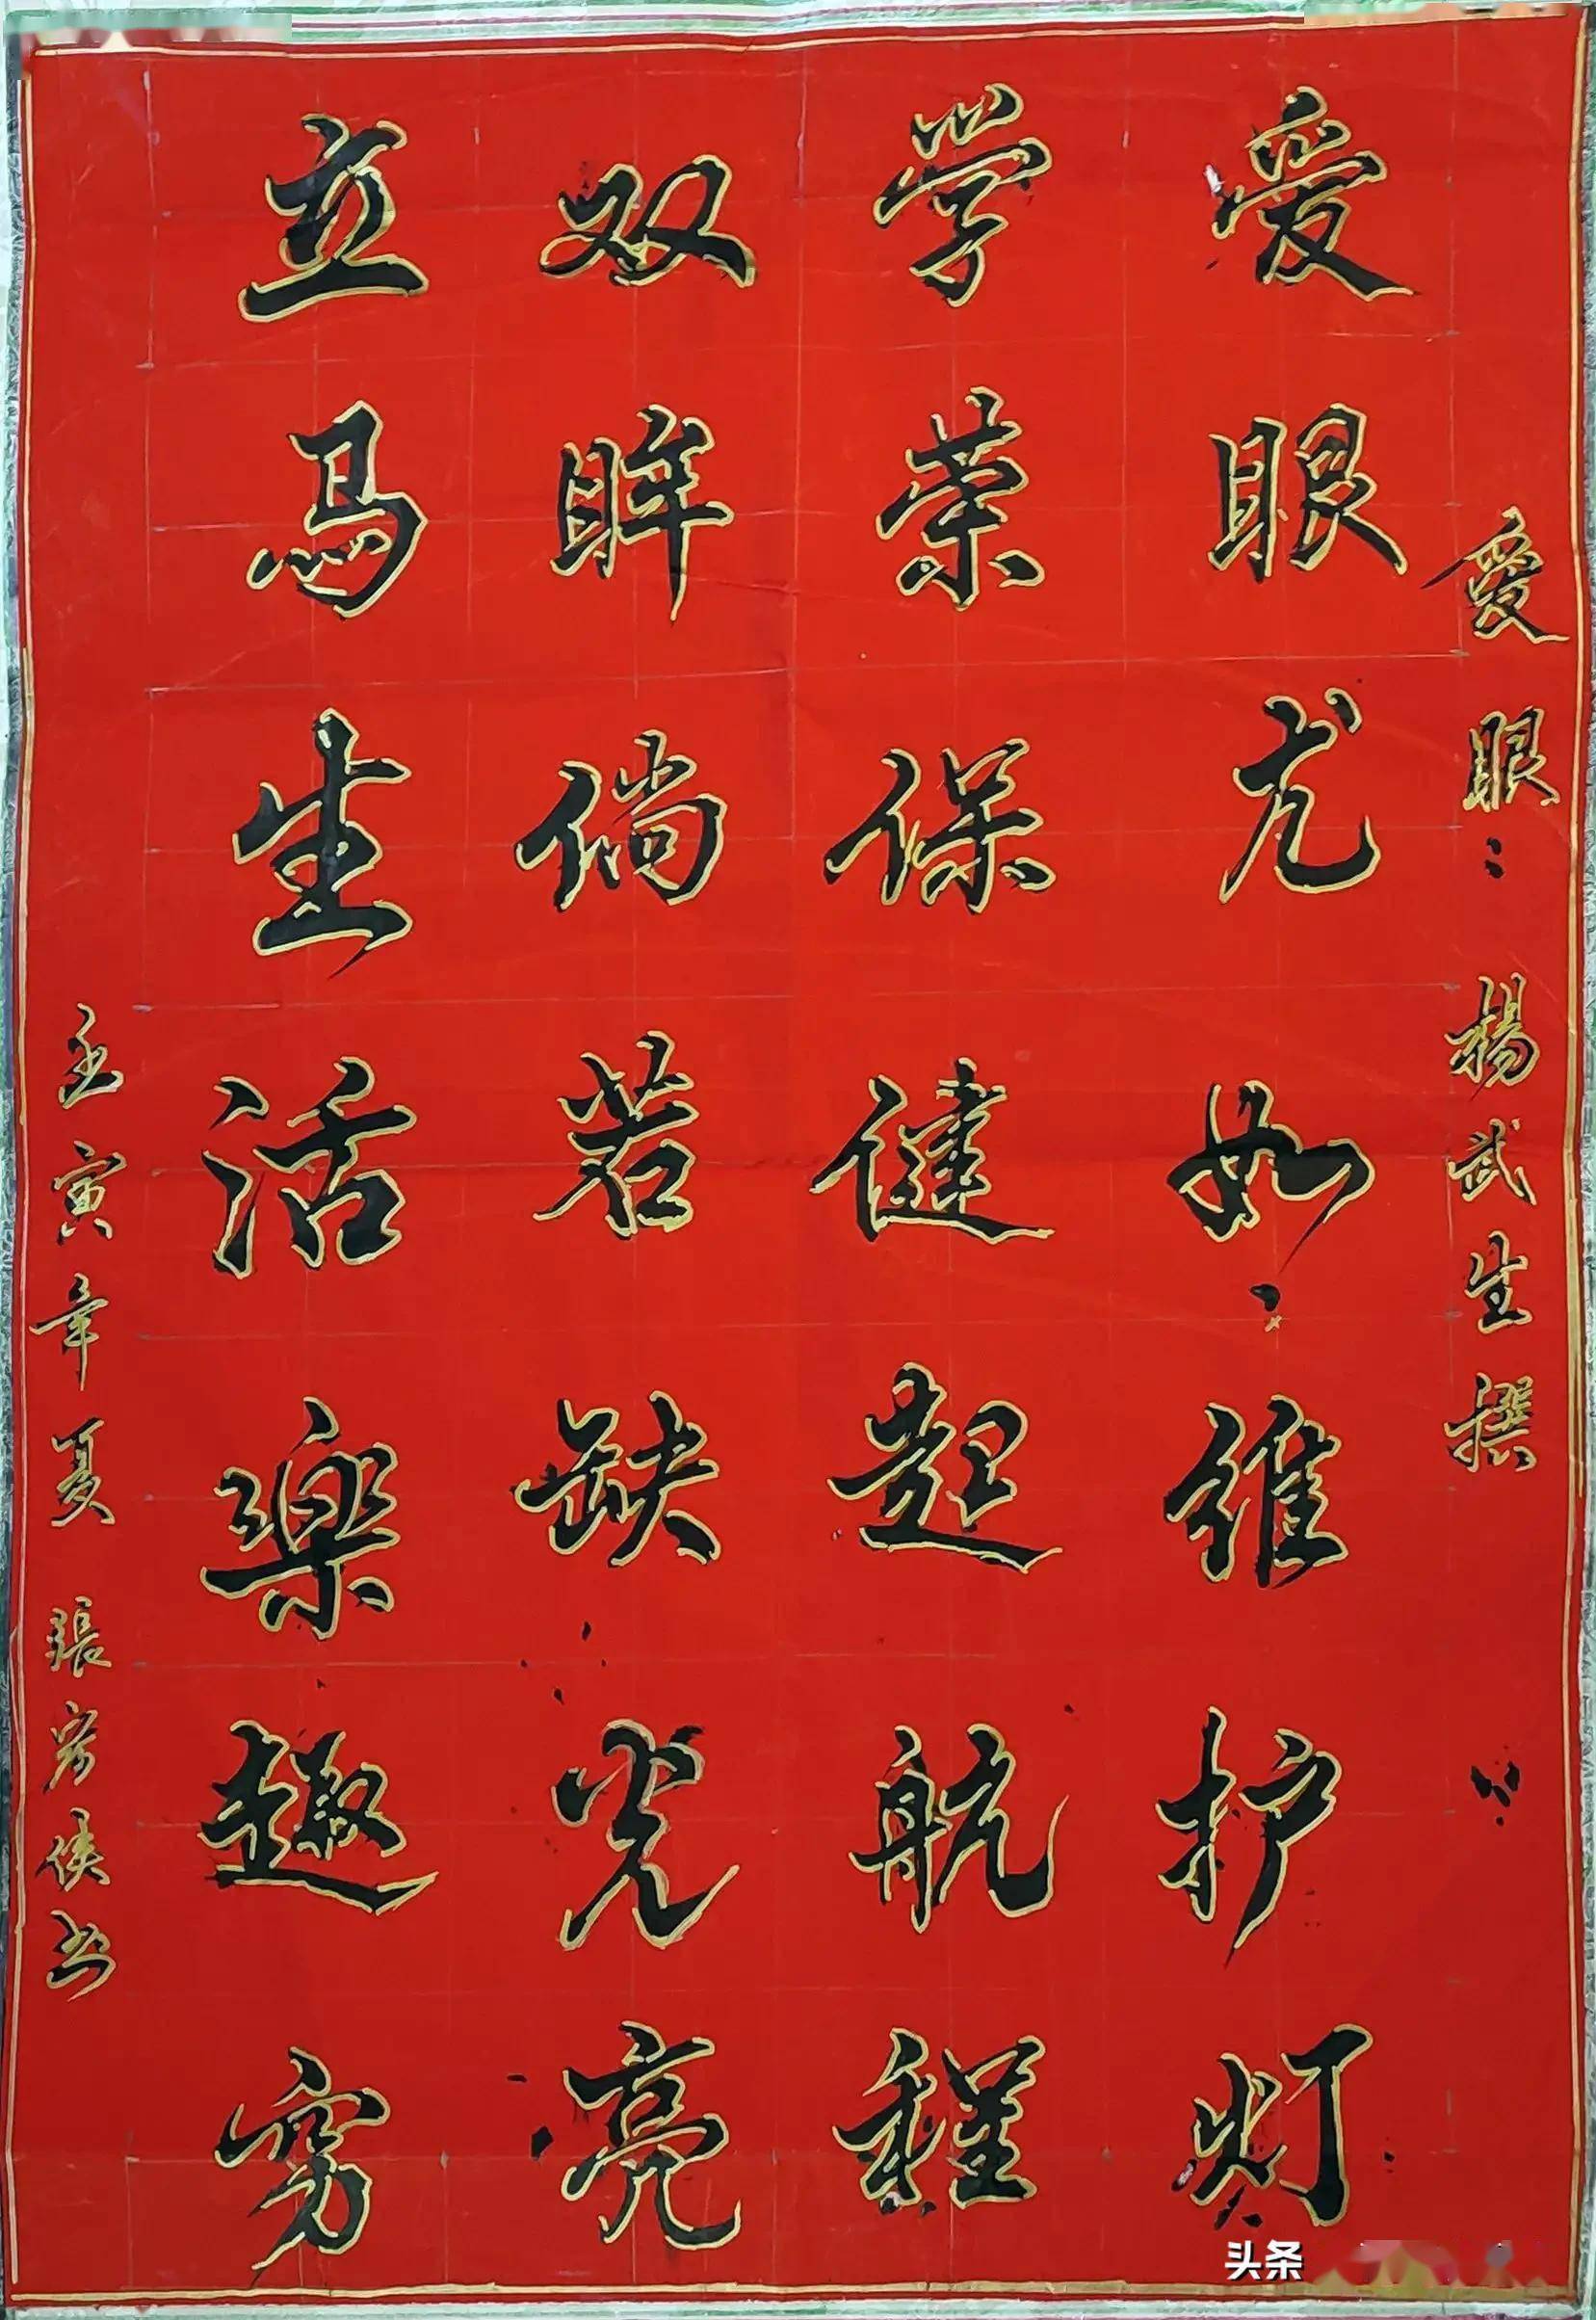 爱眼 杨武生撰
爱眼尤如维护灯
学荣保健起航程
双眸倘若缺光亮
立马生活樂趣穷
壬寅年夏 張宏侠书
头条